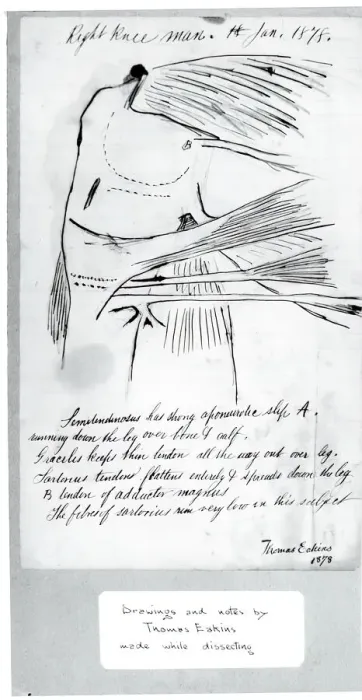 Right Knee man. 14 Jan. 1878.
B
Semitendinosus has strong aponeurotic slip A.
running down the leg over bone & calf.
Graciles keeps thin tendon all the way out over leg.
Sartorius tendons flattens entirely & spreads down the leg
B tendon of adductor magnus
The fibres of sartorius run very low in this subject
Thomas Eakins
1878
Drawings and notes by
Thomas Eakins
made while dissecting